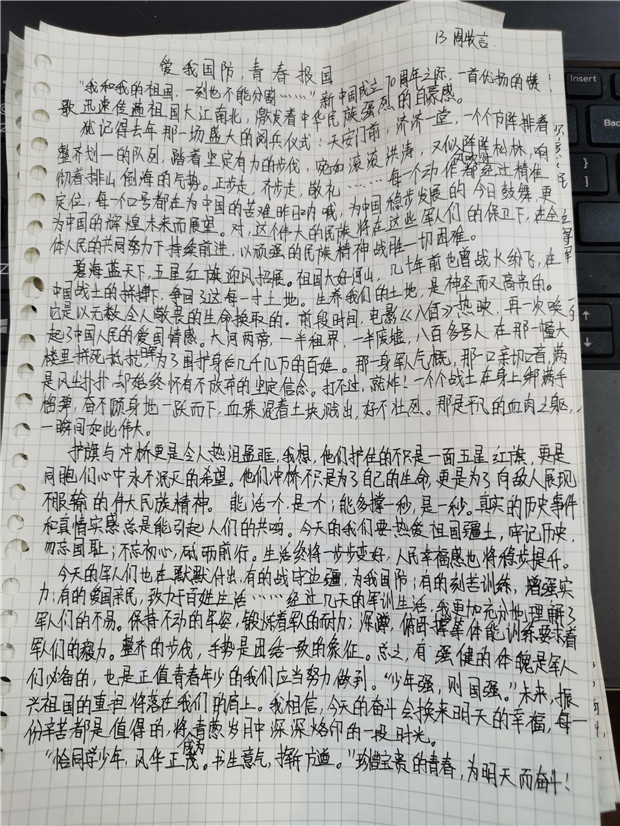 13 周牧言
爱我国防,青春报国
"我和我的祖国,一刻也不能分割……"新中国成立70周年之际,一首优扬的赞
歌迅速传遍祖国大江南北,激发着中华民族强烈的自豪感。
犹记得去年那一场盛大的阅兵仪式:天安门前,济济一堂,一个个方阵排着
整齐划一的队列,踏着坚定有力的步伐,宛如滚滚洪涛,又似阵阵松林,响
彻着排山倒海的气势。正步走,齐步走,敬礼……每一个动作都经过精准
定位,每一个口号都在为中国的苦难昨日呐喊,为中国稳步发展的今日鼓舞,更
为中国的辉煌未来而展望。对,这个伟大的民族将在这些军人们的保卫下,在全
体人民的共同努力下持续前进,以顽强的民族精神战胜一切困难。
碧海蓝天下,五星红旗迎风招展。祖国大好河山,几十年前也曾战火纷飞,在
中国战士的拼搏下,争回了这每一寸土地。生养我们的土地,是神圣而又高贵的。
它是以无数令人敬畏的生命换取的。前段时间,电影《八佰》热映,再一次唤
起了中国人民的爱国情感。大河两岸,一半租界,一半废墟,八百多号人在那一幢大
楼里拼死抵抗,为了围护身后几千几万的百姓。那一身军人气概,那一口亲切乡音,满
是风尘扑扑,却始终怀有不放弃的坚定信念。打不过,就炸!一个个战士在身上绑满手
榴弹,奋不顾身地一跃而下,血珠混着土块溅出,好不壮烈。那是平凡的血肉之躯,
一瞬间如此伟大。
护旗与冲桥更是令人热泪盈眶,我想,他们护住的不只是一面五星红旗,更是
同胞们心中永不泯灭的希望。他们冲桥不只是为了自己的生命,更是为了向敌人展现
不服输的伟大民族精神。能活一个是一个;能多撑一秒,是一秒。真实的历史事件
和真情实感总是能引起人们的共鸣。今天的我们要热爱祖国疆土,牢记历史,
勿忘国耻;不忘初心,砥砺前行。生活终将一步步变好,人民幸福感也将稳步提升。
今天的军人们也在默默付出,有的战守边疆,为我国防;有的刻苦训练,增强实
力;有的爱国亲民,致力于百姓生活……经过几天的军训生活,我更加充分地理解了
军人们的不易。保持不动的军姿,锻炼着军人的耐力;深蹲,俯卧撑等体能训练要求着
军人们的毅力。整齐的步伐,手势是团结一致的象征。总之,有强健的体魄是军人
们必备的,也是正值青春年少的我们应当努力做到。"少年强,则国强。"未来,振
兴祖国的重担将落在我们的肩上。我相信,今天的奋斗会换来明天的幸福,每一
份辛苦都是值得的,将成为青葱岁月中深深烙印的一段时光。
"恰同学少年,风华正茂。书生意气,挥斥方遒。"珍惜宝贵的青春,为明天而奋斗!
Insert